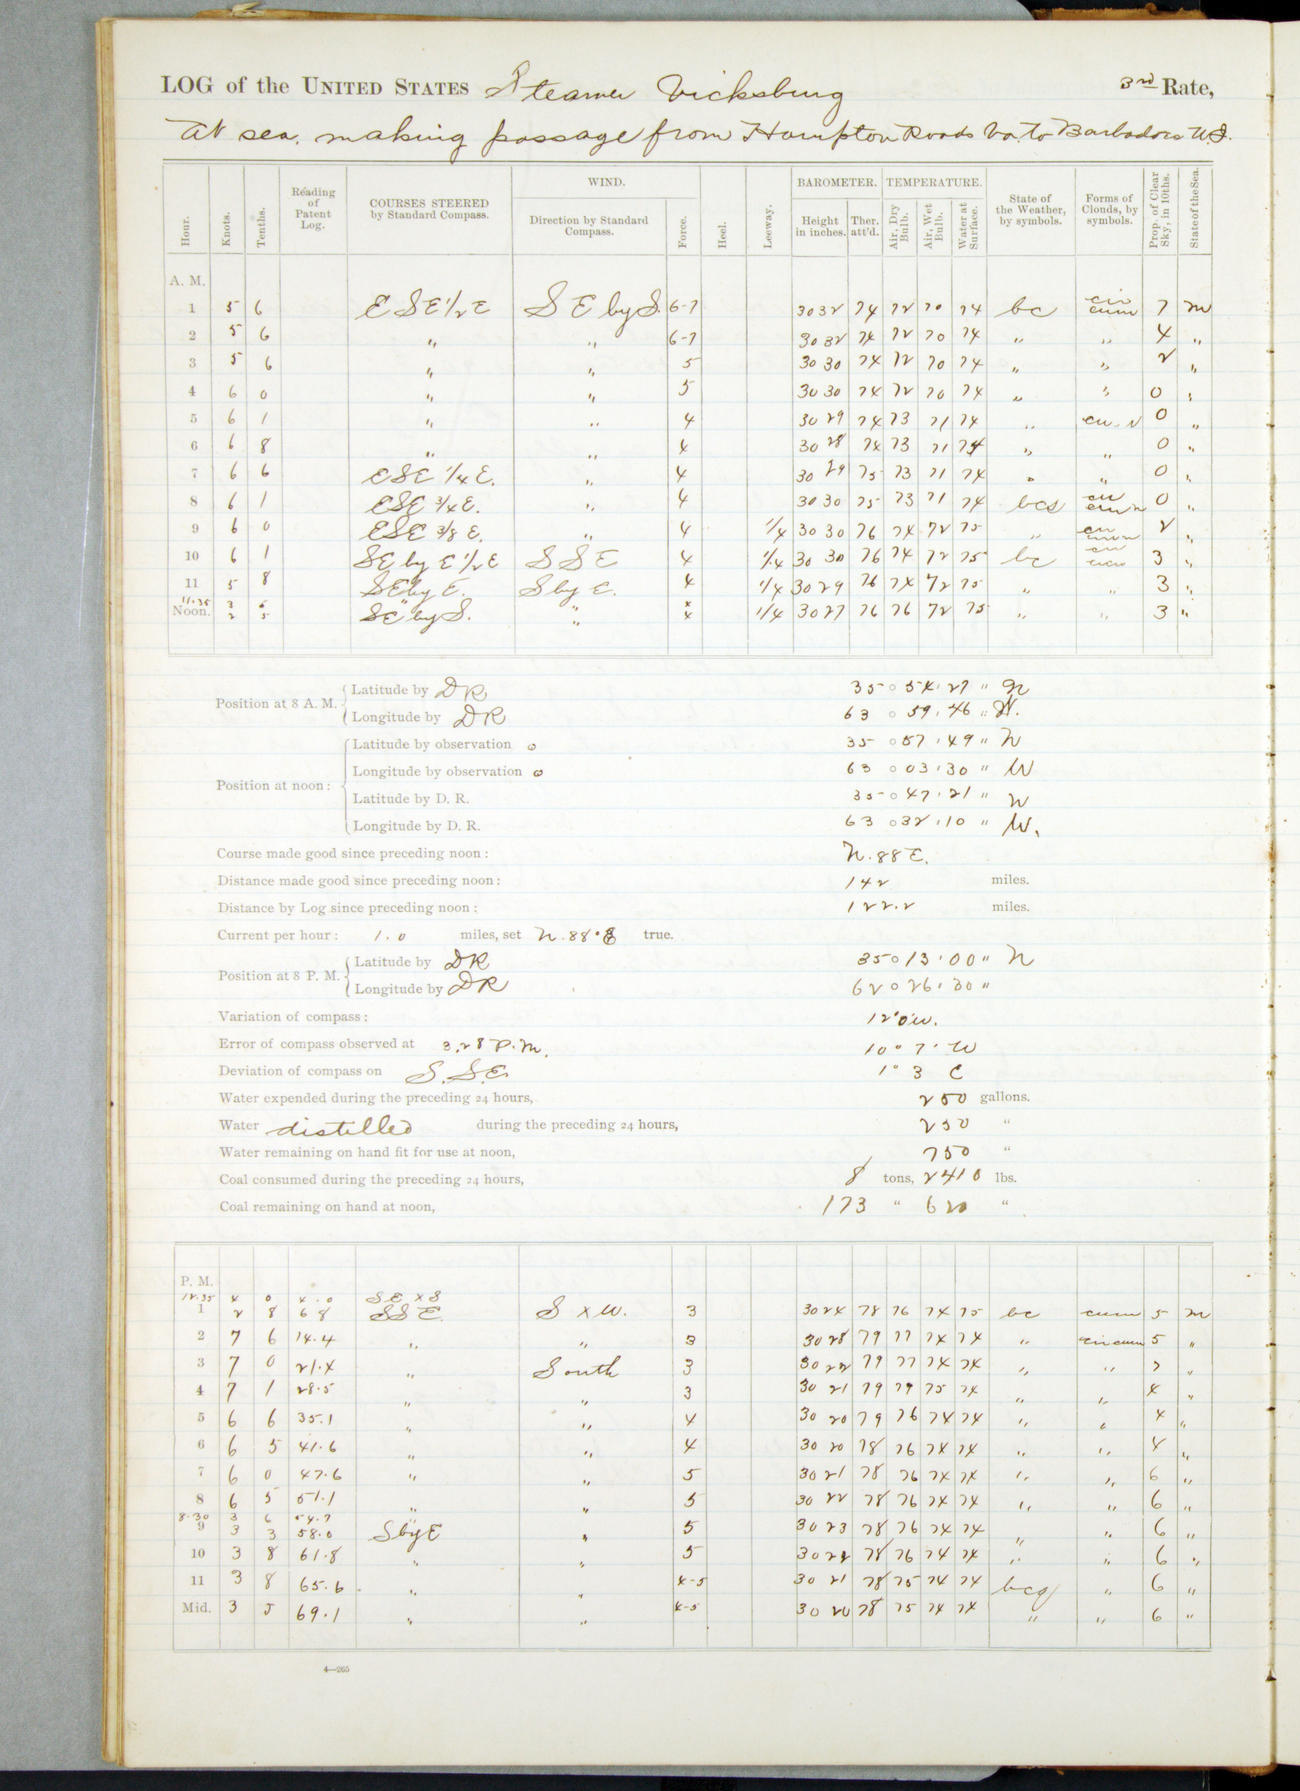 LOG of the UNITED STATES Steamer Vicksburg 3rd Rate,
At sea, making passage from Hampton Roads Va. to Barbadoes W.I.
Hour. Knots. Tenths. Reading of Patent Log. COURSES STEERED by Standard Compass. WIND. Direction by Standard Compass. Force. Heel. Leeway. BAROMETER. Height in inches. Ther. att'd. TEMPERATURE. Air, Dry Bulb. Air, Wet Bulb. Water at Surface. State of the Weather, by symbols. Forms of Clouds, by symbols. Prop. of Clear Sky, in 10ths. State of the Sea.
A. M.
1 5 6 ESE 1/2 E SE by S. 6-7 30 32 74 72 70 74 bc cir cum 7 m
2 5 6 " " 6-7 30 32 74 72 70 74 " " 4 "
3 5 6 " " 5 30 30 74 72 70 74 " " 2 "
4 6 0 " " 5 30 30 74 72 70 74 " " 0 "
5 6 1 " " 4 30 29 74 73 71 74 " cu. N 0 "
6 6 8 " " 4 30 28 74 73 71 74 " " 0 "
7 6 6 ESE 1/4 E. " 4 30 29 75 73 71 74 " " 0 "
8 6 1 ESE 3/4 E. " 4 30 30 75 73 71 74 bcs 0 "
9 6 0 ESE 3/8 E. " 4 1/4 30 30 76 74 72 75 " 2 "
10 6 1 SE by E 1/2 E SSE 4 1/4 30 30 76 74 72 75 bc 3 "
11 5 8 SE by E. S by E. 4 1/4 30 29 76 74 72 75 " " 3 "
11.35 3 5
Noon. 2 5 SE by S. " 4 1/4 30 27 76 76 72 75 " " 3 "
Position at 8 A. M. Latitude by DR 35 ° 54 ' 27 " N
Longitude by DR 63 ° 59 ' 46 " W.
Position at noon: Latitude by observation 35 ° 57 ' 49 " N
Longitude by observation 63 ° 03 ' 30 " W
Latitude by D. R. 35 ° 47 ' 21 " N
Longitude by D. R. 63 ° 32 ' 10 " W.
Course made good since preceding noon: N. 88 E.
Distance made good since preceding noon: 142 miles.
Distance by Log since preceding noon: 122.2 miles.
Current per hour: 1.0 miles, set N. 88° E true.
Position at 8 P. M. Latitude by DR 35 ° 13 ' 00 " N
Longitude by DR 62 ° 26 ' 30 "
Variation of compass: 12° 0' W.
Error of compass observed at 3.28 P.M. 10° 7' W
Deviation of compass on S.S.E. 1° 3 E
Water expended during the preceding 24 hours, 250 gallons.
Water distilled during the preceding 24 hours, 250 "
Water remaining on hand fit for use at noon, 750 "
Coal consumed during the preceding 24 hours, 8 tons, 2410 lbs.
Coal remaining on hand at noon, 173 " 620 "
P. M.
12.35 4 0 4.0 SE x S
1 2 8 6 8 SSE S x W. 3 30 24 78 76 74 75 bc cum 5 m
2 7 6 14.4 " " 3 30 28 79 77 74 74 " cir cum 5 "
3 7 0 21.4 " South 3 30 22 79 77 74 74 " " "
4 7 1 28.5 " " 3 30 21 79 77 75 74 " " 4 "
5 6 6 35.1 " " 4 30 20 79 76 74 74 " " 4 "
6 6 5 41.6 " " 4 30 20 78 76 74 74 " " 4 "
7 6 0 47.6 " " 5 30 21 78 76 74 74 " " 6 "
8 6 5 51.1 " " 5 30 22 78 76 74 74 " " 6 "
8.30 3 6 54.7
9 3 3 58.0 S by E " 5 30 23 78 76 74 74 " " 6 "
10 3 8 61.8 " " 5 30 22 78 76 74 74 " " 6 "
11 3 8 65.6 " " 4-5 30 21 78 75 74 74 bcq " 6 "
Mid. 3 5 69.1 " " 4-5 30 20 78 75 74 74 " " 6 "
4—265